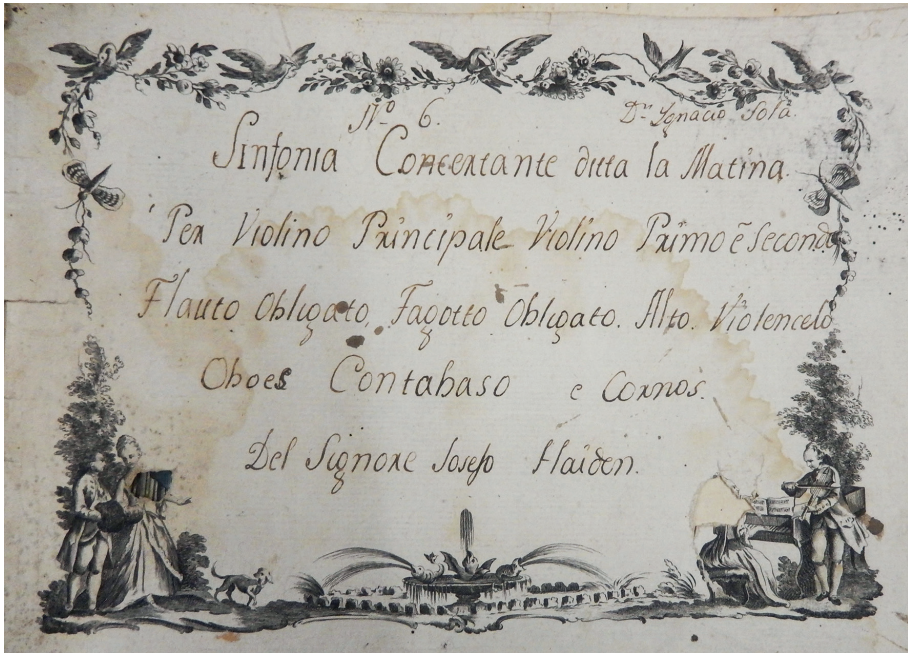 Nº 6.
Dn Ygnacio Sola.
Sinfonia Concertante ditta la Matina.
Per Violino Principale Violino Primo ē Second
Flauto Obligato. Fagotto Obligato. Alto. Violencelo
Oboes Contabaso e Cornos.
Del Signore Josefo Haiden.